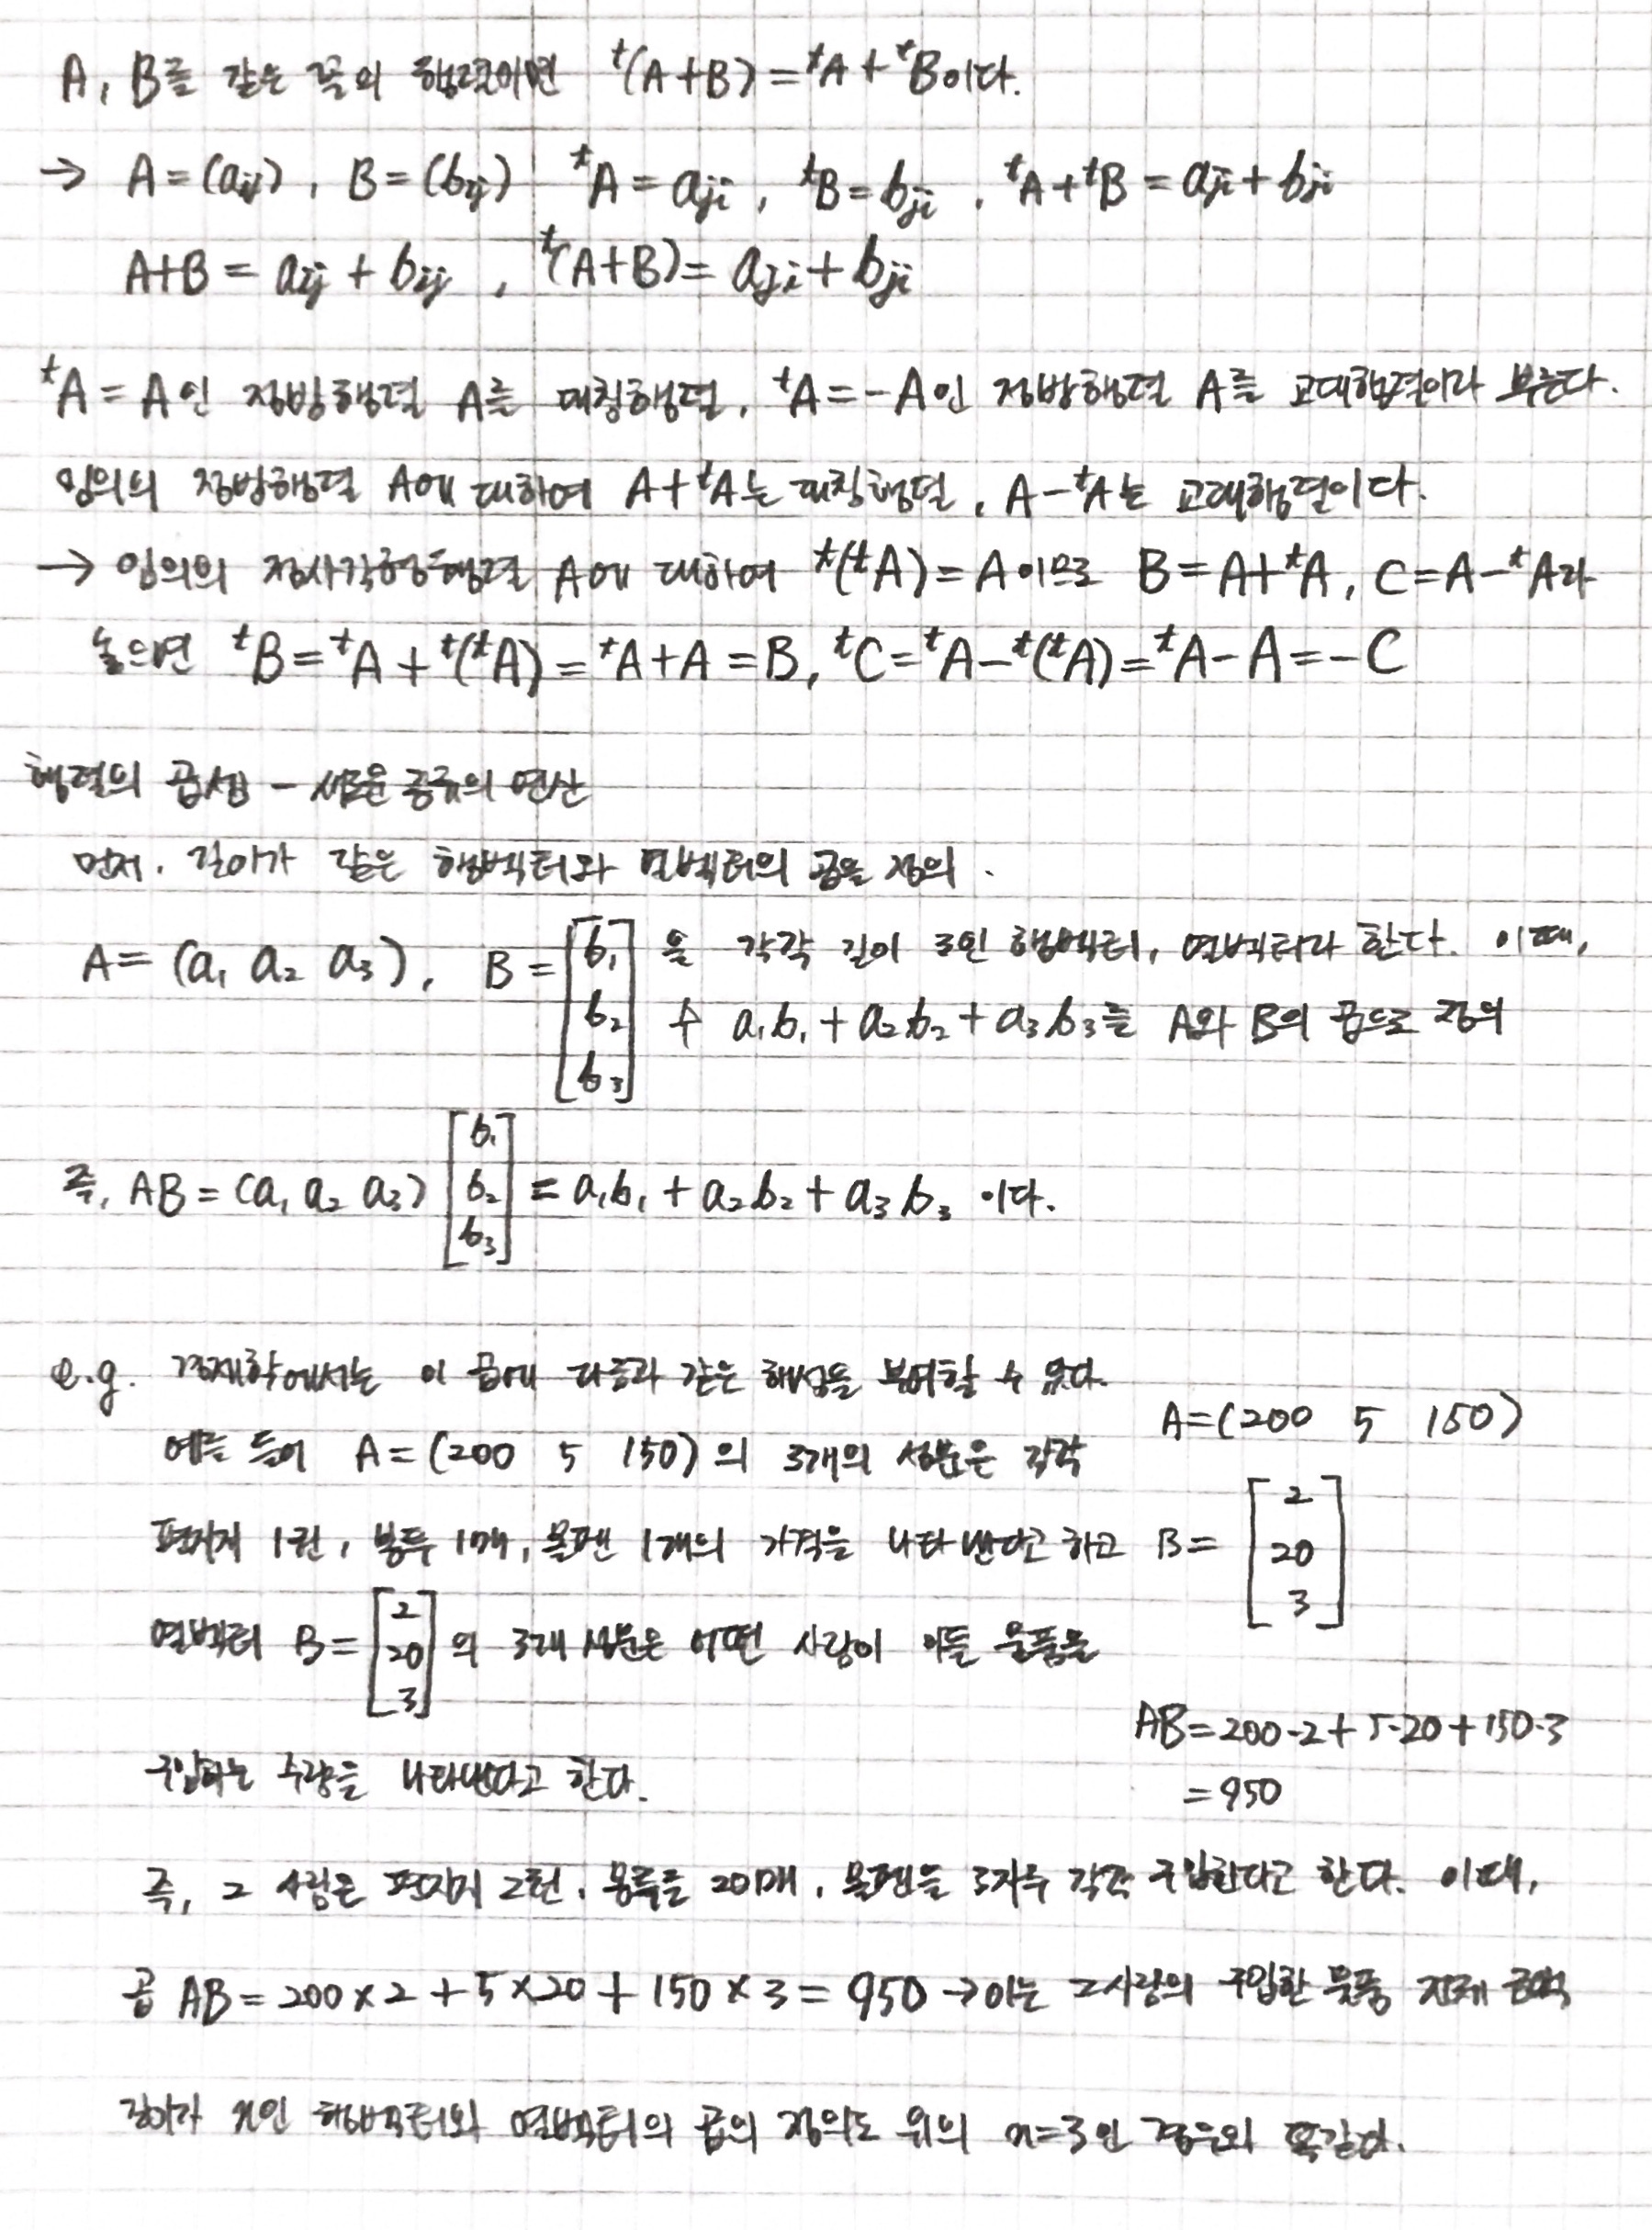 A, B를 같은 꼴의 행렬이면 ᵗ(A+B) = ᵗA + ᵗB이다.
→ A = (aij), B = (bij) ᵗA = aji, ᵗB = bji, ᵗA + ᵗB = aji + bji
A+B = aij + bij, ᵗ(A+B) = aji + bji
ᵗA = A인 정방행렬 A를 대칭행렬, ᵗA = -A인 정방행렬 A를 교대행렬이라 부른다.
임의의 정방행렬 A에 대하여 A+ᵗA는 대칭행렬, A-ᵗA는 교대행렬이다.
→ 임의의 정사각형행렬 A에 대하여 ᵗ(ᵗA) = A이므로 B = A+ᵗA, C = A-ᵗA라
놓으면 ᵗB = ᵗA + ᵗ(ᵗA) = ᵗA + A = B, ᵗC = ᵗA - ᵗ(ᵗA) = ᵗA - A = -C
행렬의 곱셈 - 새로운 종류의 연산
먼저, 길이가 같은 행벡터와 열벡터의 곱을 정의.
A = (a₁ a₂ a₃), B = [b₁ b₂ b₃] 을 각각 길이 3인 행벡터, 열벡터라 한다. 이때,
수 a₁b₁ + a₂b₂ + a₃b₃를 A와 B의 곱으로 정의
즉, AB = (a₁ a₂ a₃) [b₁ b₂ b₃] = a₁b₁ + a₂b₂ + a₃b₃ 이다.
e.g. 경제학에서는 이 곱에 다음과 같은 해석을 부여할 수 있다.
A = (200 5 150)
예를 들어 A = (200 5 150)의 3개의 성분은 각각
편지지 1권, 봉투 1매, 볼펜 1개의 가격을 나타낸다고 하고
B = [2 20 3]
열벡터 B = [2 20 3] 의 3개 성분은 어떤 사람이 이들 물품을
AB = 200·2 + 5·20 + 150·3
구입하는 수량을 나타낸다고 한다.
= 950
즉, 그 사람은 편지지 2권, 봉투를 20매, 볼펜을 3자루 각각 구입한다고 한다. 이때,
곱 AB = 200 × 2 + 5 × 20 + 150 × 3 = 950 → 이는 그사람의 구입한 물품 전체 금액
길이가 n인 행벡터와 열벡터의 곱의 정의도 위의 n=3인 경우와 똑같다.